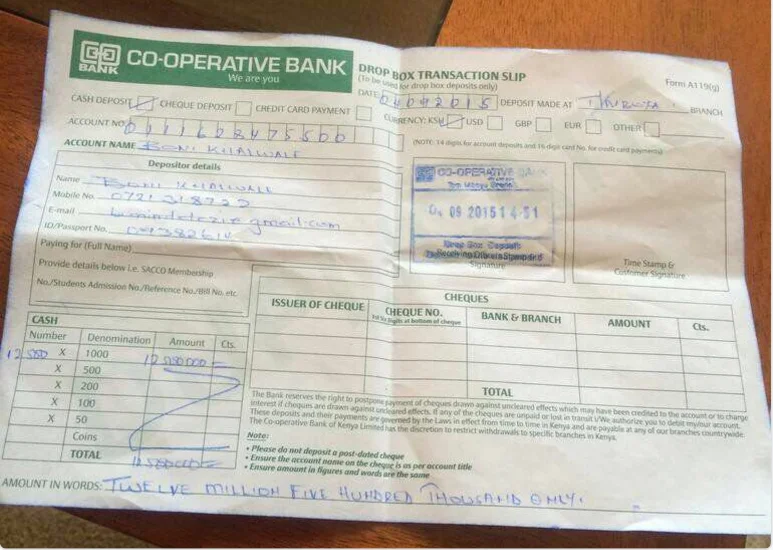 CO-OPERATIVE BANK
BANK
We are you
DROP BOX TRANSACTION SLIP
(To be used for drop box deposits only)
Form A119(g)
DATE DEPOSIT MADE AT BRANCH
CASH DEPOSIT CHEQUE DEPOSIT CREDIT CARD PAYMENT
CURRENCY: KSH USD GBP EUR OTHER
ACCOUNT NO.
(NOTE: 14 digits for account deposits and 16 digit card No. for credit card payments)
ACCOUNT NAME BONI KHALWALE
Depositor details
Name BONI KHALWALE
Mobile No.
E-mail
ID/Passport No.
Paying for (Full Name)
Provide details below i.e. SACCO Membership
No./Students Admission No./Reference No./Bill No. etc.
CO-OPERATIVE BANK
04 09 2015 14-51
Drop Box Deposit
Signature
Time Stamp &
Customer Signature
CASH
Number Denomination Amount Cts.
12,500 X 1000 12,500,000 =
X 500
X 200
X 100
X 50
Coins
TOTAL 12,500,000 =
CHEQUES
ISSUER OF CHEQUE CHEQUE NO. BANK & BRANCH AMOUNT Cts.
1st Six Digits at bottom of cheque
TOTAL
The Bank reserves the right to postpone payment of cheques drawn against uncleared effects which may have been credited to the account or to charge
interest if cheques are drawn against uncleared effects. If any of the cheques are unpaid or lost in transit I/We authorize you to debit my/our account.
These deposits and their payments are governed by the Laws in effect from time to time in Kenya and are payable at any of our branches countrywide.
The Co-operative Bank of Kenya Limited has the discretion to restrict withdrawals to specific branches in Kenya.
Note:
• Please do not deposit a post-dated cheque
• Ensure the account name on the cheque is as per account title
• Ensure amount in figures and words are the same
AMOUNT IN WORDS: TWELVE MILLION FIVE HUNDRED THOUSAND ONLY.